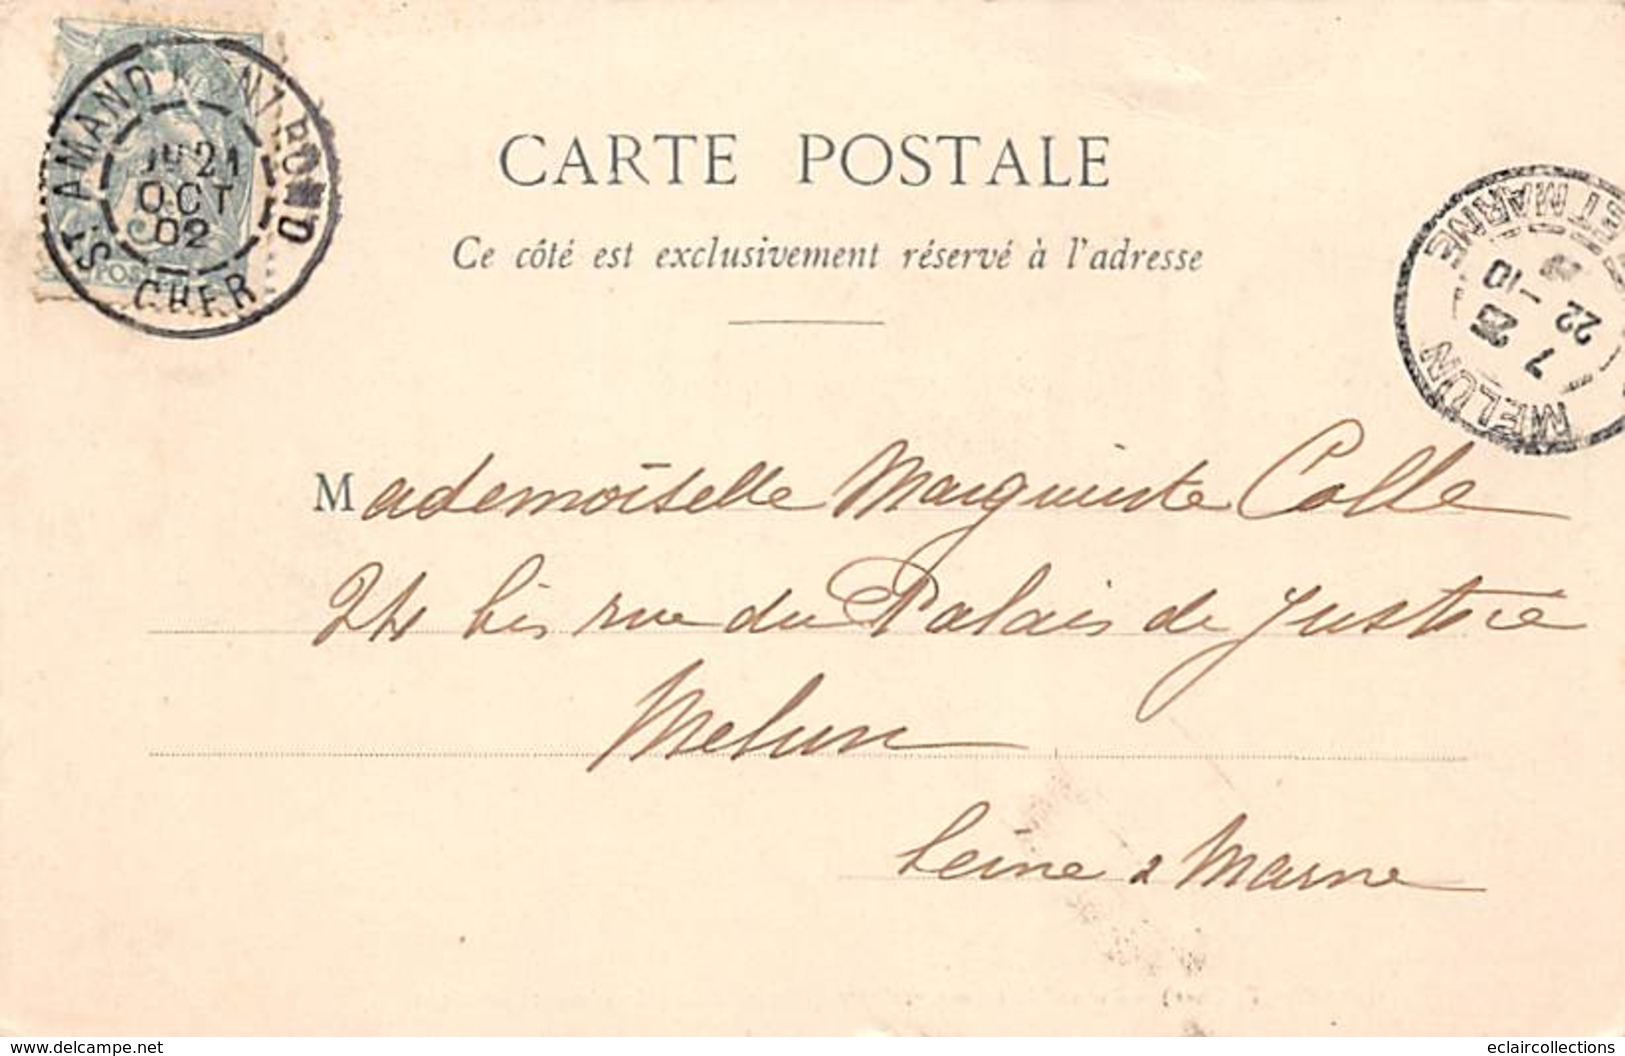 ST AMAND MONTROND
21
OCT
02
CHER
POST
CARTE POSTALE
Ce côté est exclusivement réservé à l'adresse
MELUN
7 25
22 -10
ET MARNE
Mademoiselle Marguerite Colle
24 bis rue du Palais de Justice
Melun
Seine & Marne
www.delcampe.net
eclaircollections